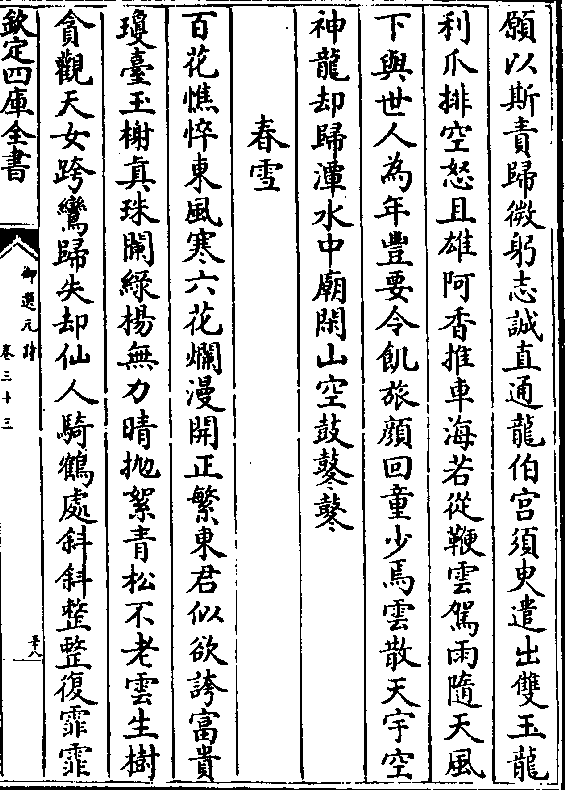 願以斯責歸微躬志誠直通龍伯宫須臾遣出雙玉龍
利爪排空怒且雄阿香推車海若從鞭雲駕雨隨天風
下與世人為年豐要令飢旅顔回童少焉雲散天宇空
神龍却歸潭水中廟閑山空鼓鼕鼕
春雪
百花憔悴東風寒六花爛漫開正繁東君似欲誇富貴
瓊臺玉榭真珠闌綠楊無力晴抛絮青松不老雲生樹
貪觀天女跨鸞歸失却仙人騎鶴處斜斜整整復霏霏
欽定四庫全書
御選元詩
卷三十三